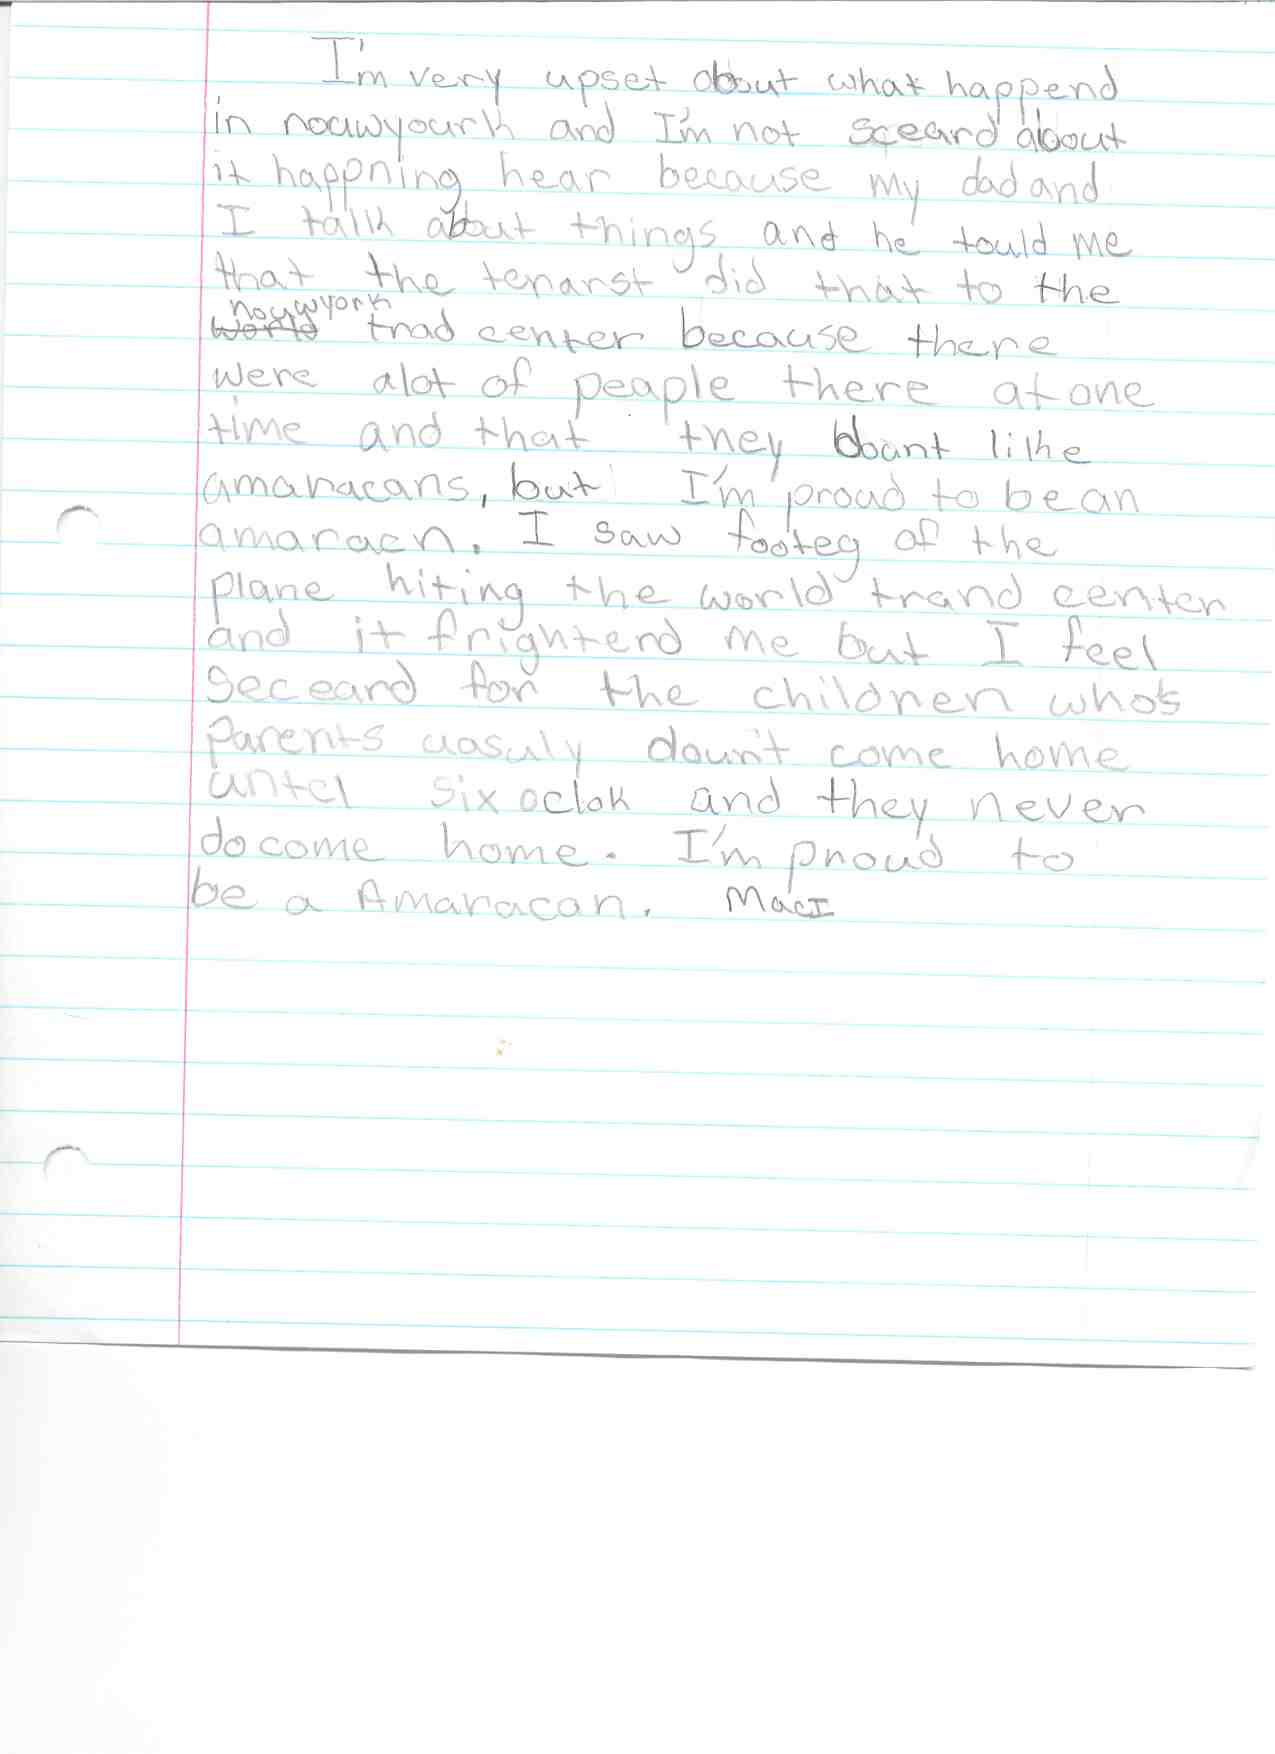 I'm very upset about what happend
in noawyourk and I'm not sceard about
it happning hear because my dad and
I talk about things and he tould me
that the terarst did that to the
nouwyork
world trad center because there
were alot of peaple there at one
time and that they dount like
amaracans, but I'm proud to be an
amaracn. I saw footeg of the
plane hiting the world trand center
and it frightend me but I feel
seceard for the children who's
parents uasuly doun't come home
untel six oclok and they never
do come home. I'm proud to
be a Amaracan. Maci